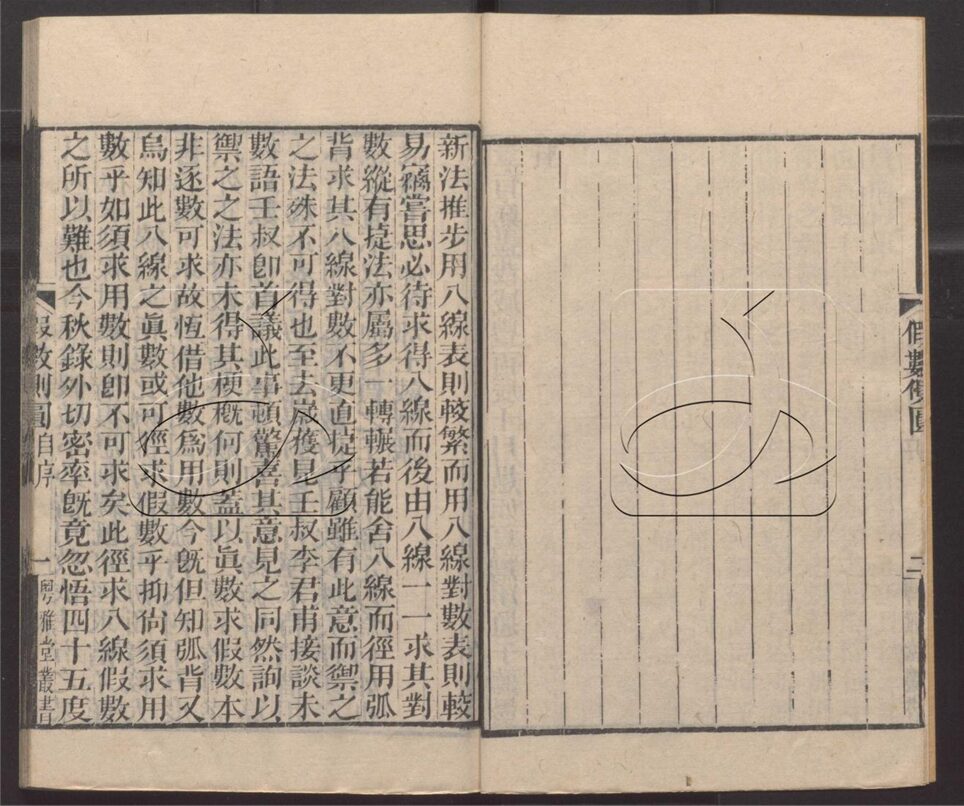 假數
二
新法推步用八線表則較繁而用八線對數表則較
易竊嘗思必待求得八線而後由八線一一求其對
數縱有捷法亦屬多一轉輾若能舍八線而徑用弧
背求其八線對數不更直捷乎顧雖有此意而禦之
之法殊不可得也至去歲獲見壬叔李君甫接談未
數語壬叔卽首議此事頓驚喜其意見之同然詢以
禦之之法亦未得其梗概何則蓋以眞數求假數本
非逐數可求故恆借他數爲用數今旣但知弧背又
烏知此八線之眞數或可徑求假數乎抑尙須求用
數乎如須求用數則卽不可求矣此徑求八線假數
之所以難也今秋錄外切密率旣竟忽悟四十五度
假數則圓自序
一
粵雅堂叢書